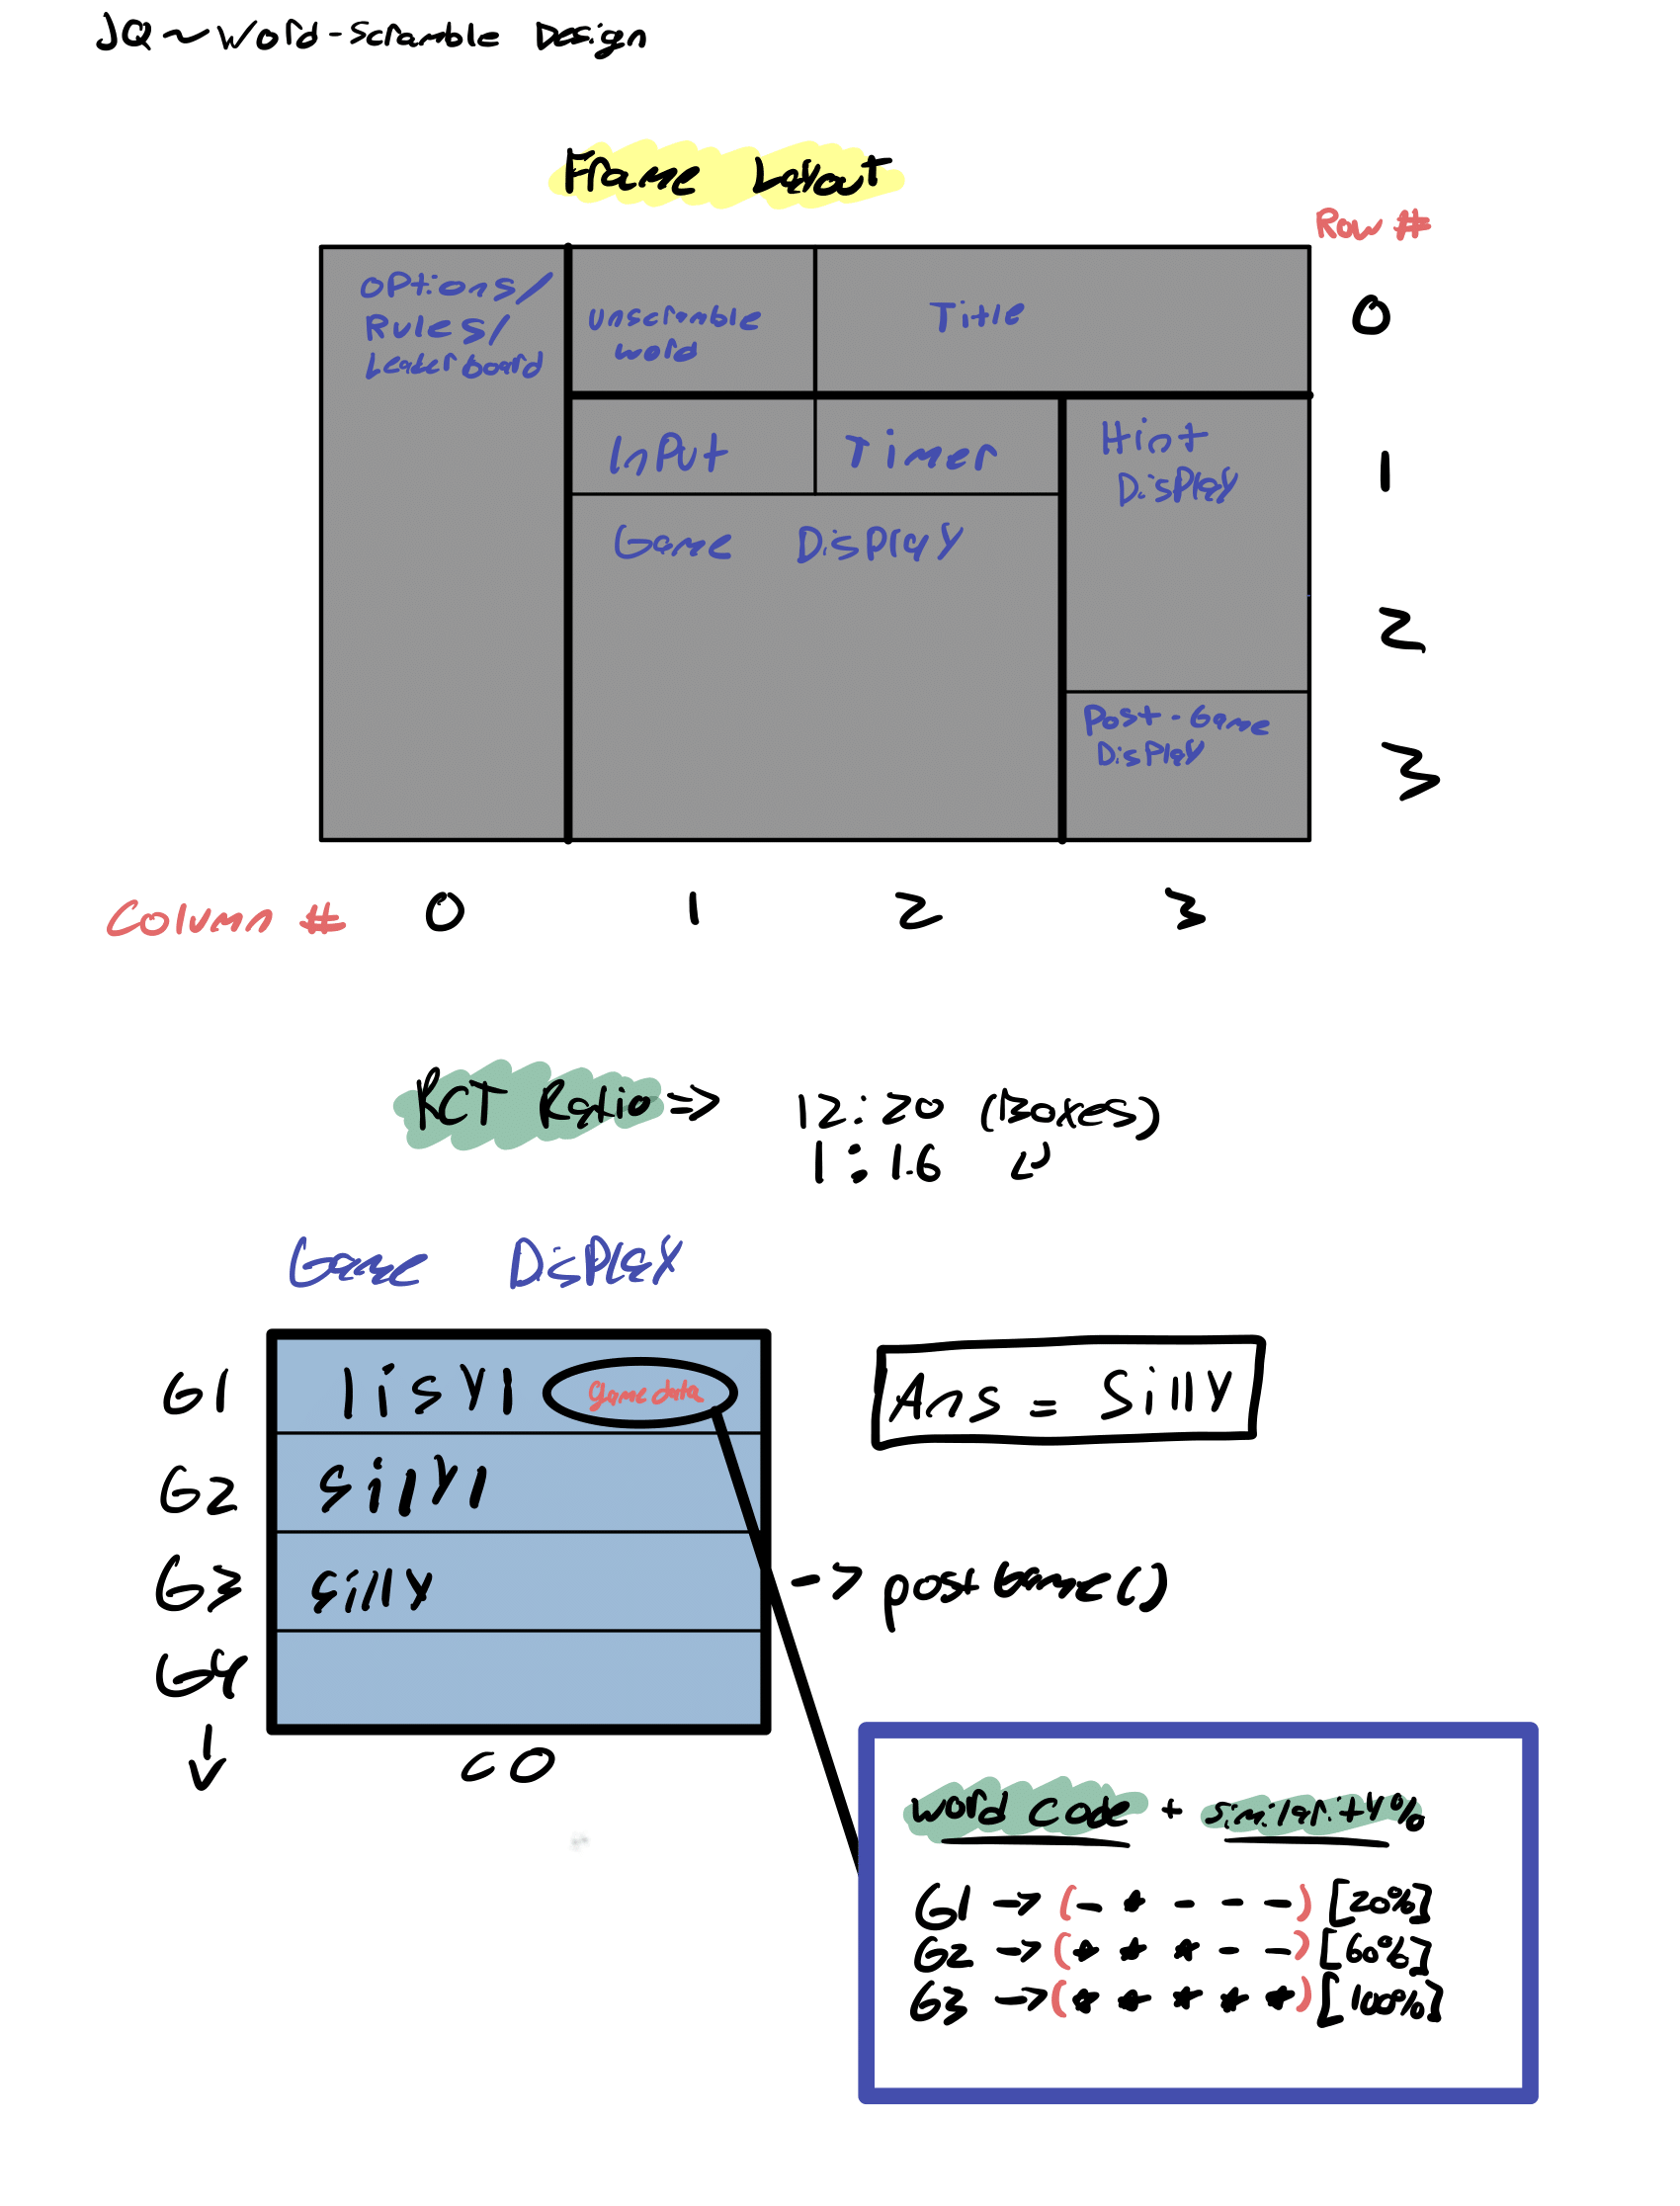 JQ ~ Word-Scramble Design
Frame Layout
Row #
Options/
Rules/
Leaderboard
unscramble
word
Title
0
Input
Timer
Hint
Display
1
Game Display
2
Post-Game
Display
3
Column # 0 1 2 3
RCT Ratio => 12:20 (Boxes)
1:1.6
Game Display
G1 lisyl game data
Ans = Silly
G2 silyl
G3 silly -> postGame()
G4
C0
word code + similarity%
G1 -> (- * - - -) [20%]
G2 -> (* * * - -) [60%]
G3 -> (* * * * *) [100%]